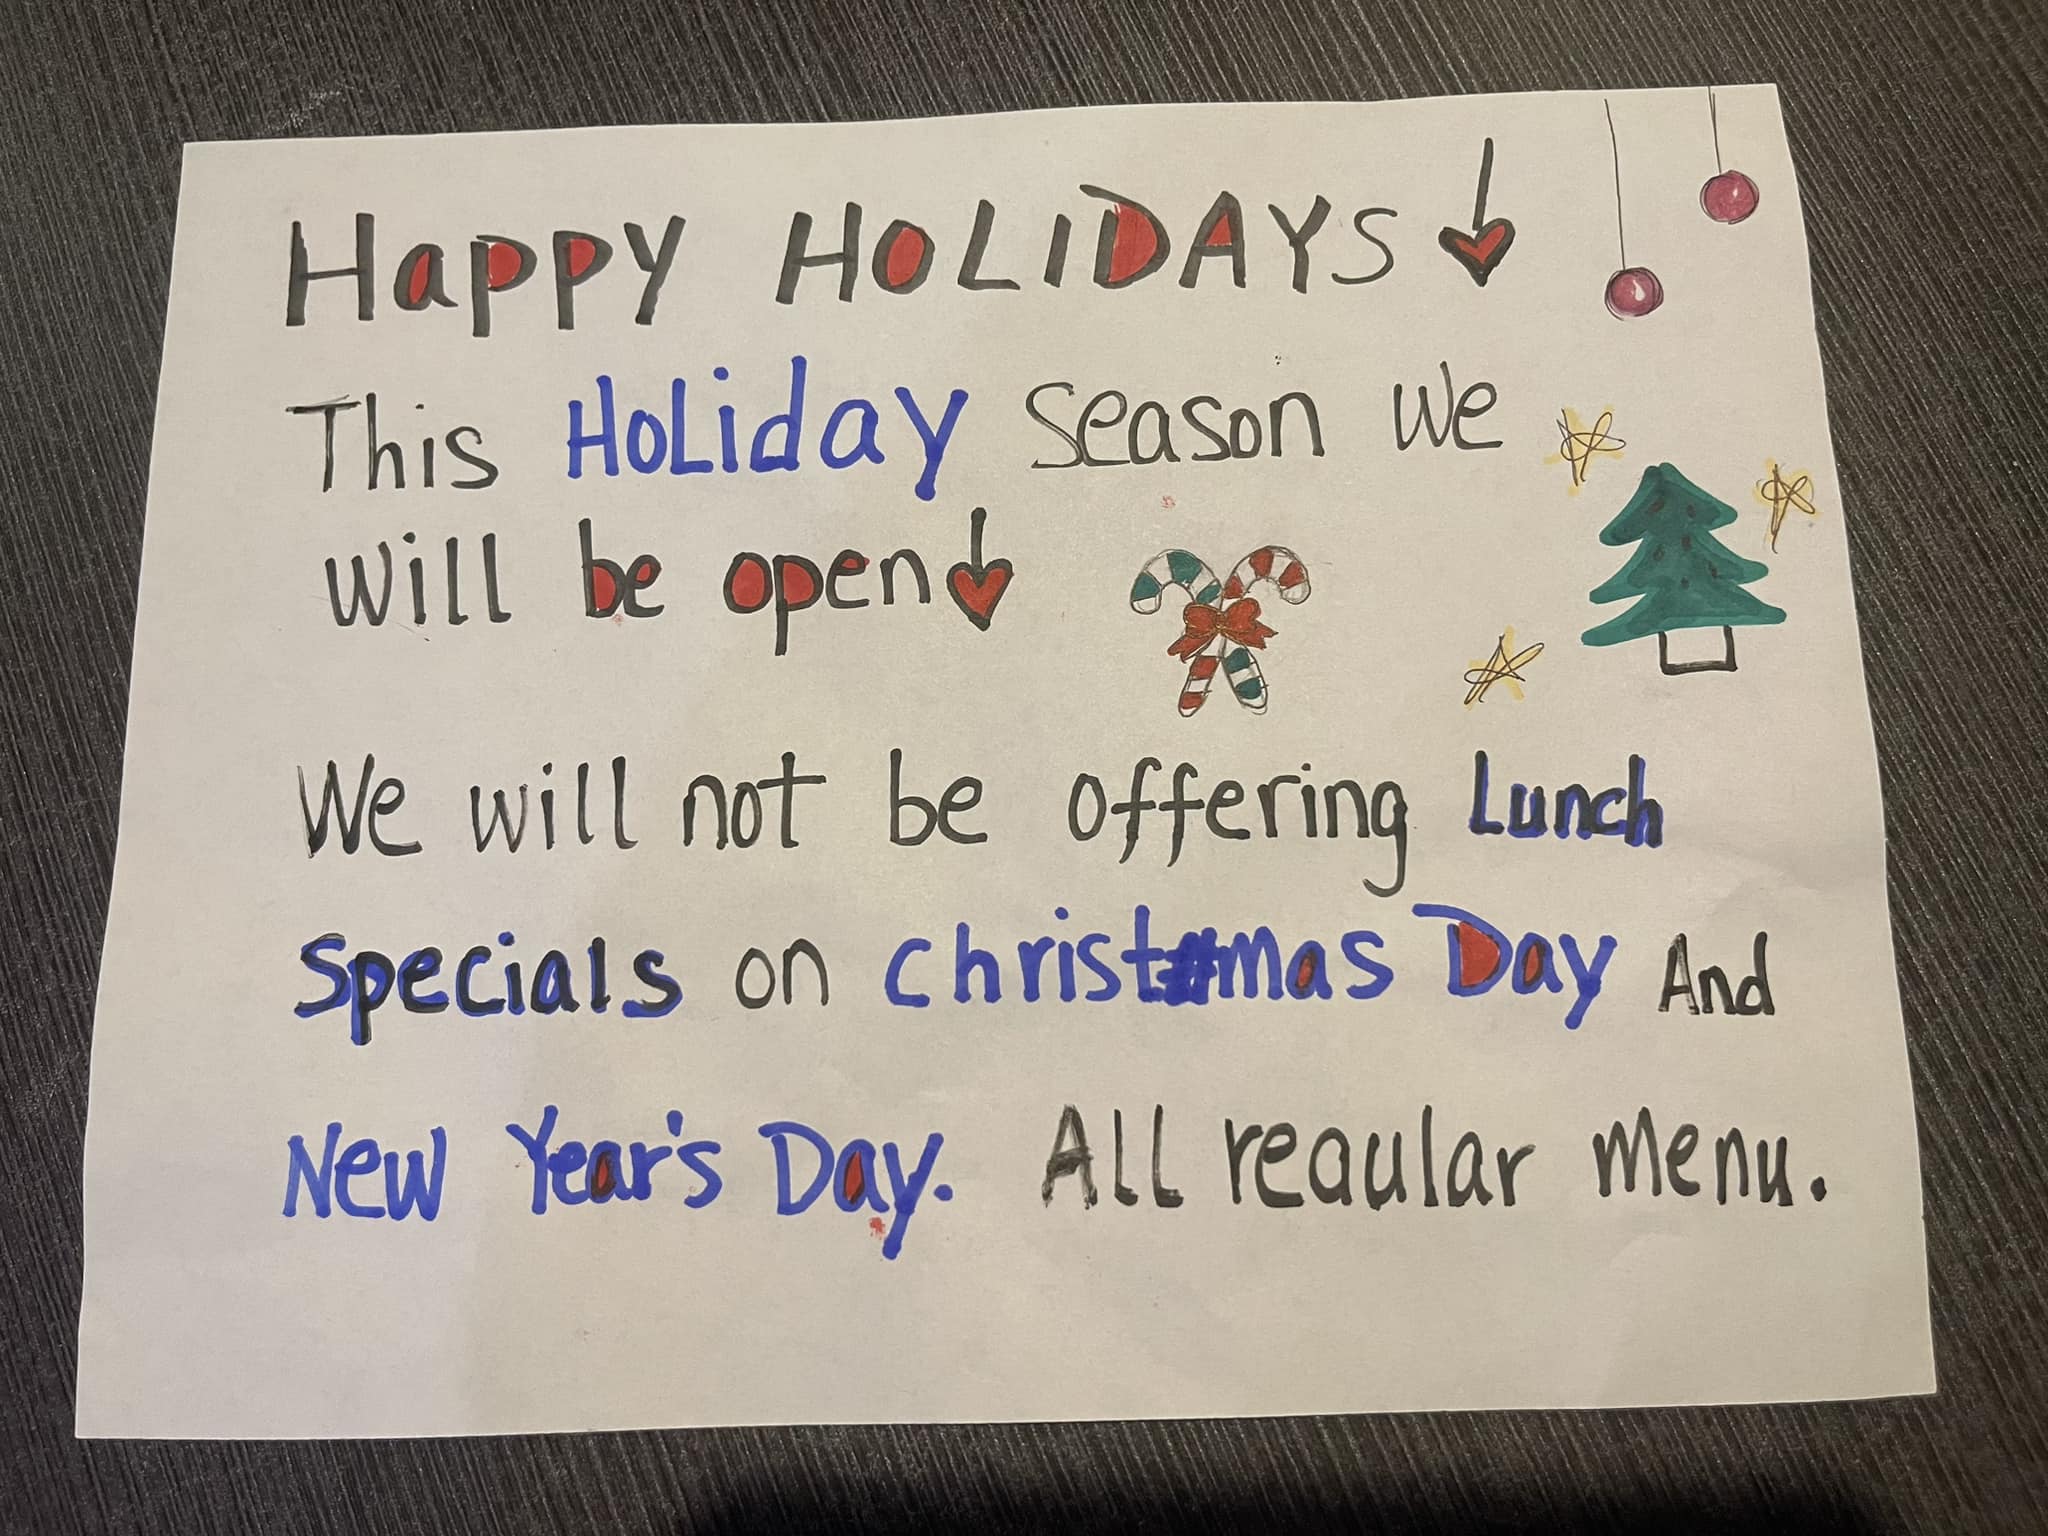 Happy HOLIDAYS
This HoLiday Season We
will be open
We will not be offering Lunch
Specials on christmas Day And
New Year's Day. All reaular menu.